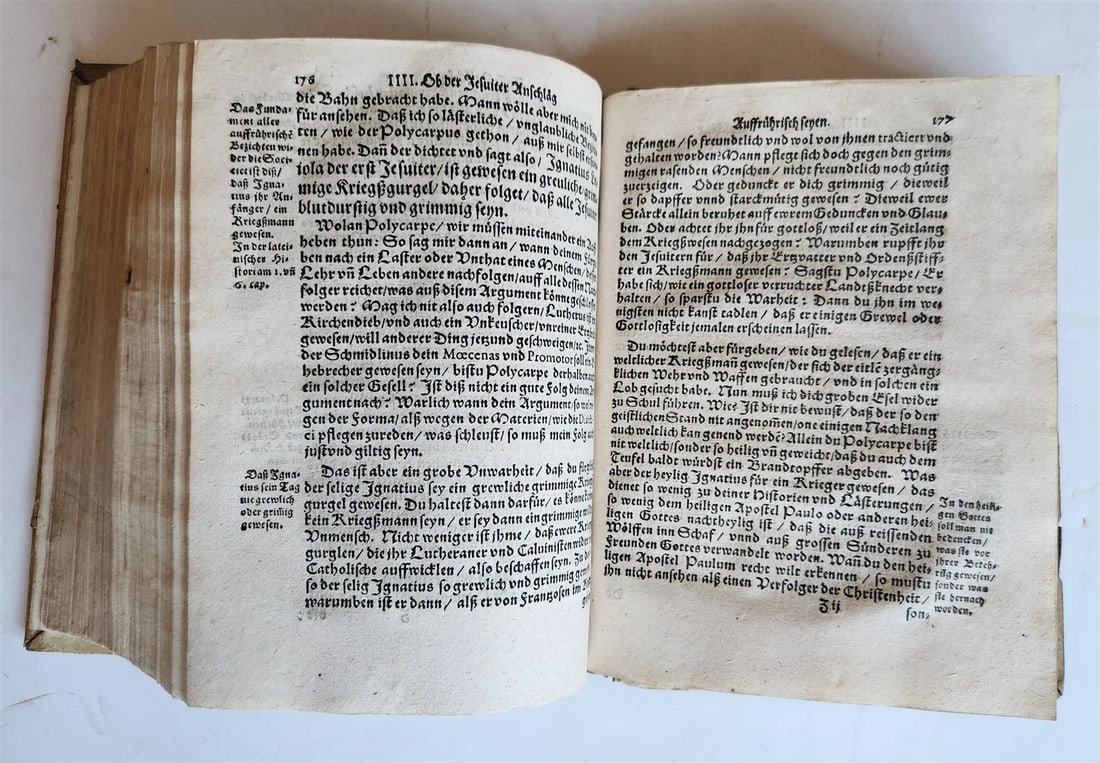 176
IIII. Ob der Jesuiter Anschläg
Das Funda-
ment aller
auffrührischē
Bezichten wi-
der die Soci-
etet ist diß/
daß Igna-
tius jhr An-
fänger/ ein
Kriegßmann
gewesen.
In der latei-
nischer Hi-
storiam 1. vñ
6. cap.
die Bahn gebracht habe. Mann wölle aber mich nit
für ansehen. Daß ich so lästerliche / vnglaubliche
ten / wie der Polycarpus gethon / auß mir selbst
nen habe. Dañ der dichtet vnd sagt also / Ignatius
iola der erst Jesuiter/ ist gewesen ein greuliche
mige Kriegßgurgel/ daher folget/ daß alle Jesuiter
blutdurstig vnd grimmig seyn.
Wolan Polycarpe/ wir müssen miteinander ein
heben thun: So sag mir dann an/ wann deinem
ben nach ein Laster oder Vnthat eines Menschen/
Lehr vñ Leben andere nachfolgen/ auff alle dessen
folger reichet/ was auß disem Argument könne
werden? Mag ich nit also auch folgern/ Lutherus ist
Kirchendieb/ vnd auch ein Vnkeuscher/ vnreiner
gewesen/ will anderer Ding jetzund geschweigen/ ꝛc.
der Schmidlinus dein Mœcenas vnd Promotor soll ein
hebrecher gewesen seyn/ bistu Polycarpe derhalben
ein solcher Gesell? Ist diß nicht ein gute Folg deinen
gument nach? Warlich wann dein Argument/ so
gen der Forma/ alß wegen der Materien/ wie die
ci pflegen zureden / was schleust / so muß mein Folg
just vnd giltig seyn.
Daß Igna-
tius sein Tag
nie grewlich
oder grimig
gewesen.
Das ist aber ein grobe Vnwarheit / daß du
der selige Ignatius sey ein grewliche grimmige
gurgel gewesen. Du haltest dann darfür/ es könne
kein Kriegßmann seyn/ er sey dann ein grimmige
Vnmensch. Nicht weniger ist jhme / daß ewere
gurglen/ die jhr Lutheraner vnd Caluinisten wider
Catholische auffwicklen / also beschaffen seyn. Zu
so der selig Ignatius so grewlich vnd grimmig
warumben ist er dann / alß er von Frantzosen im
Auffrührisch seyen.
177
gefangen / so freundtlich vnd wol von jhnen tractiert vnd
gehalten worden? Mann pflege sich doch gegen den grim-
migen rasenden Menschen / nicht freundtlich noch gütig
zuerzeigen. Oder gedunckt er dich grimmig / dieweil
er so dapffer vnnd starckmütig gewesen? Dieweil ewer
Stärcke allein beruhet auff ewrem Geduncken vnd Glau-
ben. Oder achtet jhr jhn für gottloß/ weil er ein Zeitlang
dem Kriegßwesen nachgezogen? Warumben rupfft jhr
den Jesuitern für/ daß jhr Ertzvatter vnd Ordenßstiff-
ter ein Kriegßmann gewesen? Sagstu Polycarpe/ Er
habe sich/ wie ein gottloser verruchter Landtßknecht ver-
halten / so sparstu die Warheit: Dann du jhn im we-
nigsten nicht kanst tadlen / daß er einigen Grewel oder
Gottlosigkeit jemalen erscheinen lassen.
Du möchtest aber fürgeben/ wie du gelesen/ daß er ein
weltlicher Kriegßmañ gewesen/ der sich der eitlē zergäng-
klichen Wehr vnd Waffen gebraucht / vnd in solchen ein
Lob gesucht habe. Nun muß ich dich groben Esel wider
zu Schul führen. Wie? Ist dir nie bewust/ daß der so den
geistlichen Stand nit angenom̄en/ one einigen Nachklang
auch weltlich kan genend werdē? Allein du Polycarpe bist
nit weltlich/ sonder so heilig vñ geweicht/ daß du auch dem
Teufel baldt würdst ein Brandtopffer abgeben. Was
aber der heylig Ignatius für ein Krieger gewesen / das
dienet so wenig zu deiner Historien vnd Lästerungen /
so wenig dem heiligen Apostel Paulo oder anderen hei-
ligen Gottes nachtheylig ist / daß die auß reissenden
Wölffen inn Schaf / vnnd auß grossen Sünderen zu
Freunden Gottes verwandelt worden. Wañ du den hei-
ligen Apostel Paulum recht wilt erkennen / so mustu
jhn nicht ansehen alß einen Verfolger der Christenheit /
In den heili-
gen Gottes
soll man nit
bedencken/
was sie vor
jhrer Bekeh-
rüg gewesen/
sonder was
sie hernach
worden.
Z ij
son-